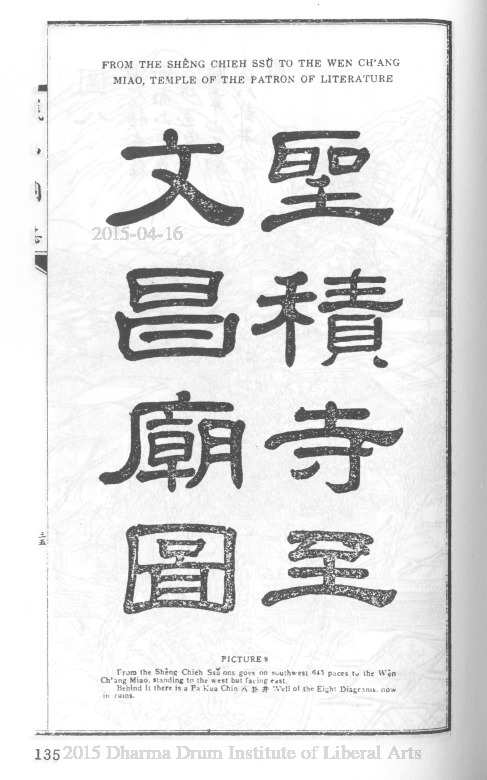 FROM THE SHÊNG CHIEH SSŬ TO THE WEN CH'ANG
MIAO, TEMPLE OF THE PATRON OF LITERATURE
聖積寺至
文昌廟圖
2015-04-16
PICTURE 8
From the Shêng Chieh Ssŭ ons goes on southwest 645 paces to the Wên
Ch'ang Miao, standing to the west but facing east.
Behind it there is a Pa Kua Chin 八卦井 Well of the Eight Diagrams, now
in ruins.
135
2015 Dharma Drum Institute of Liberal Arts